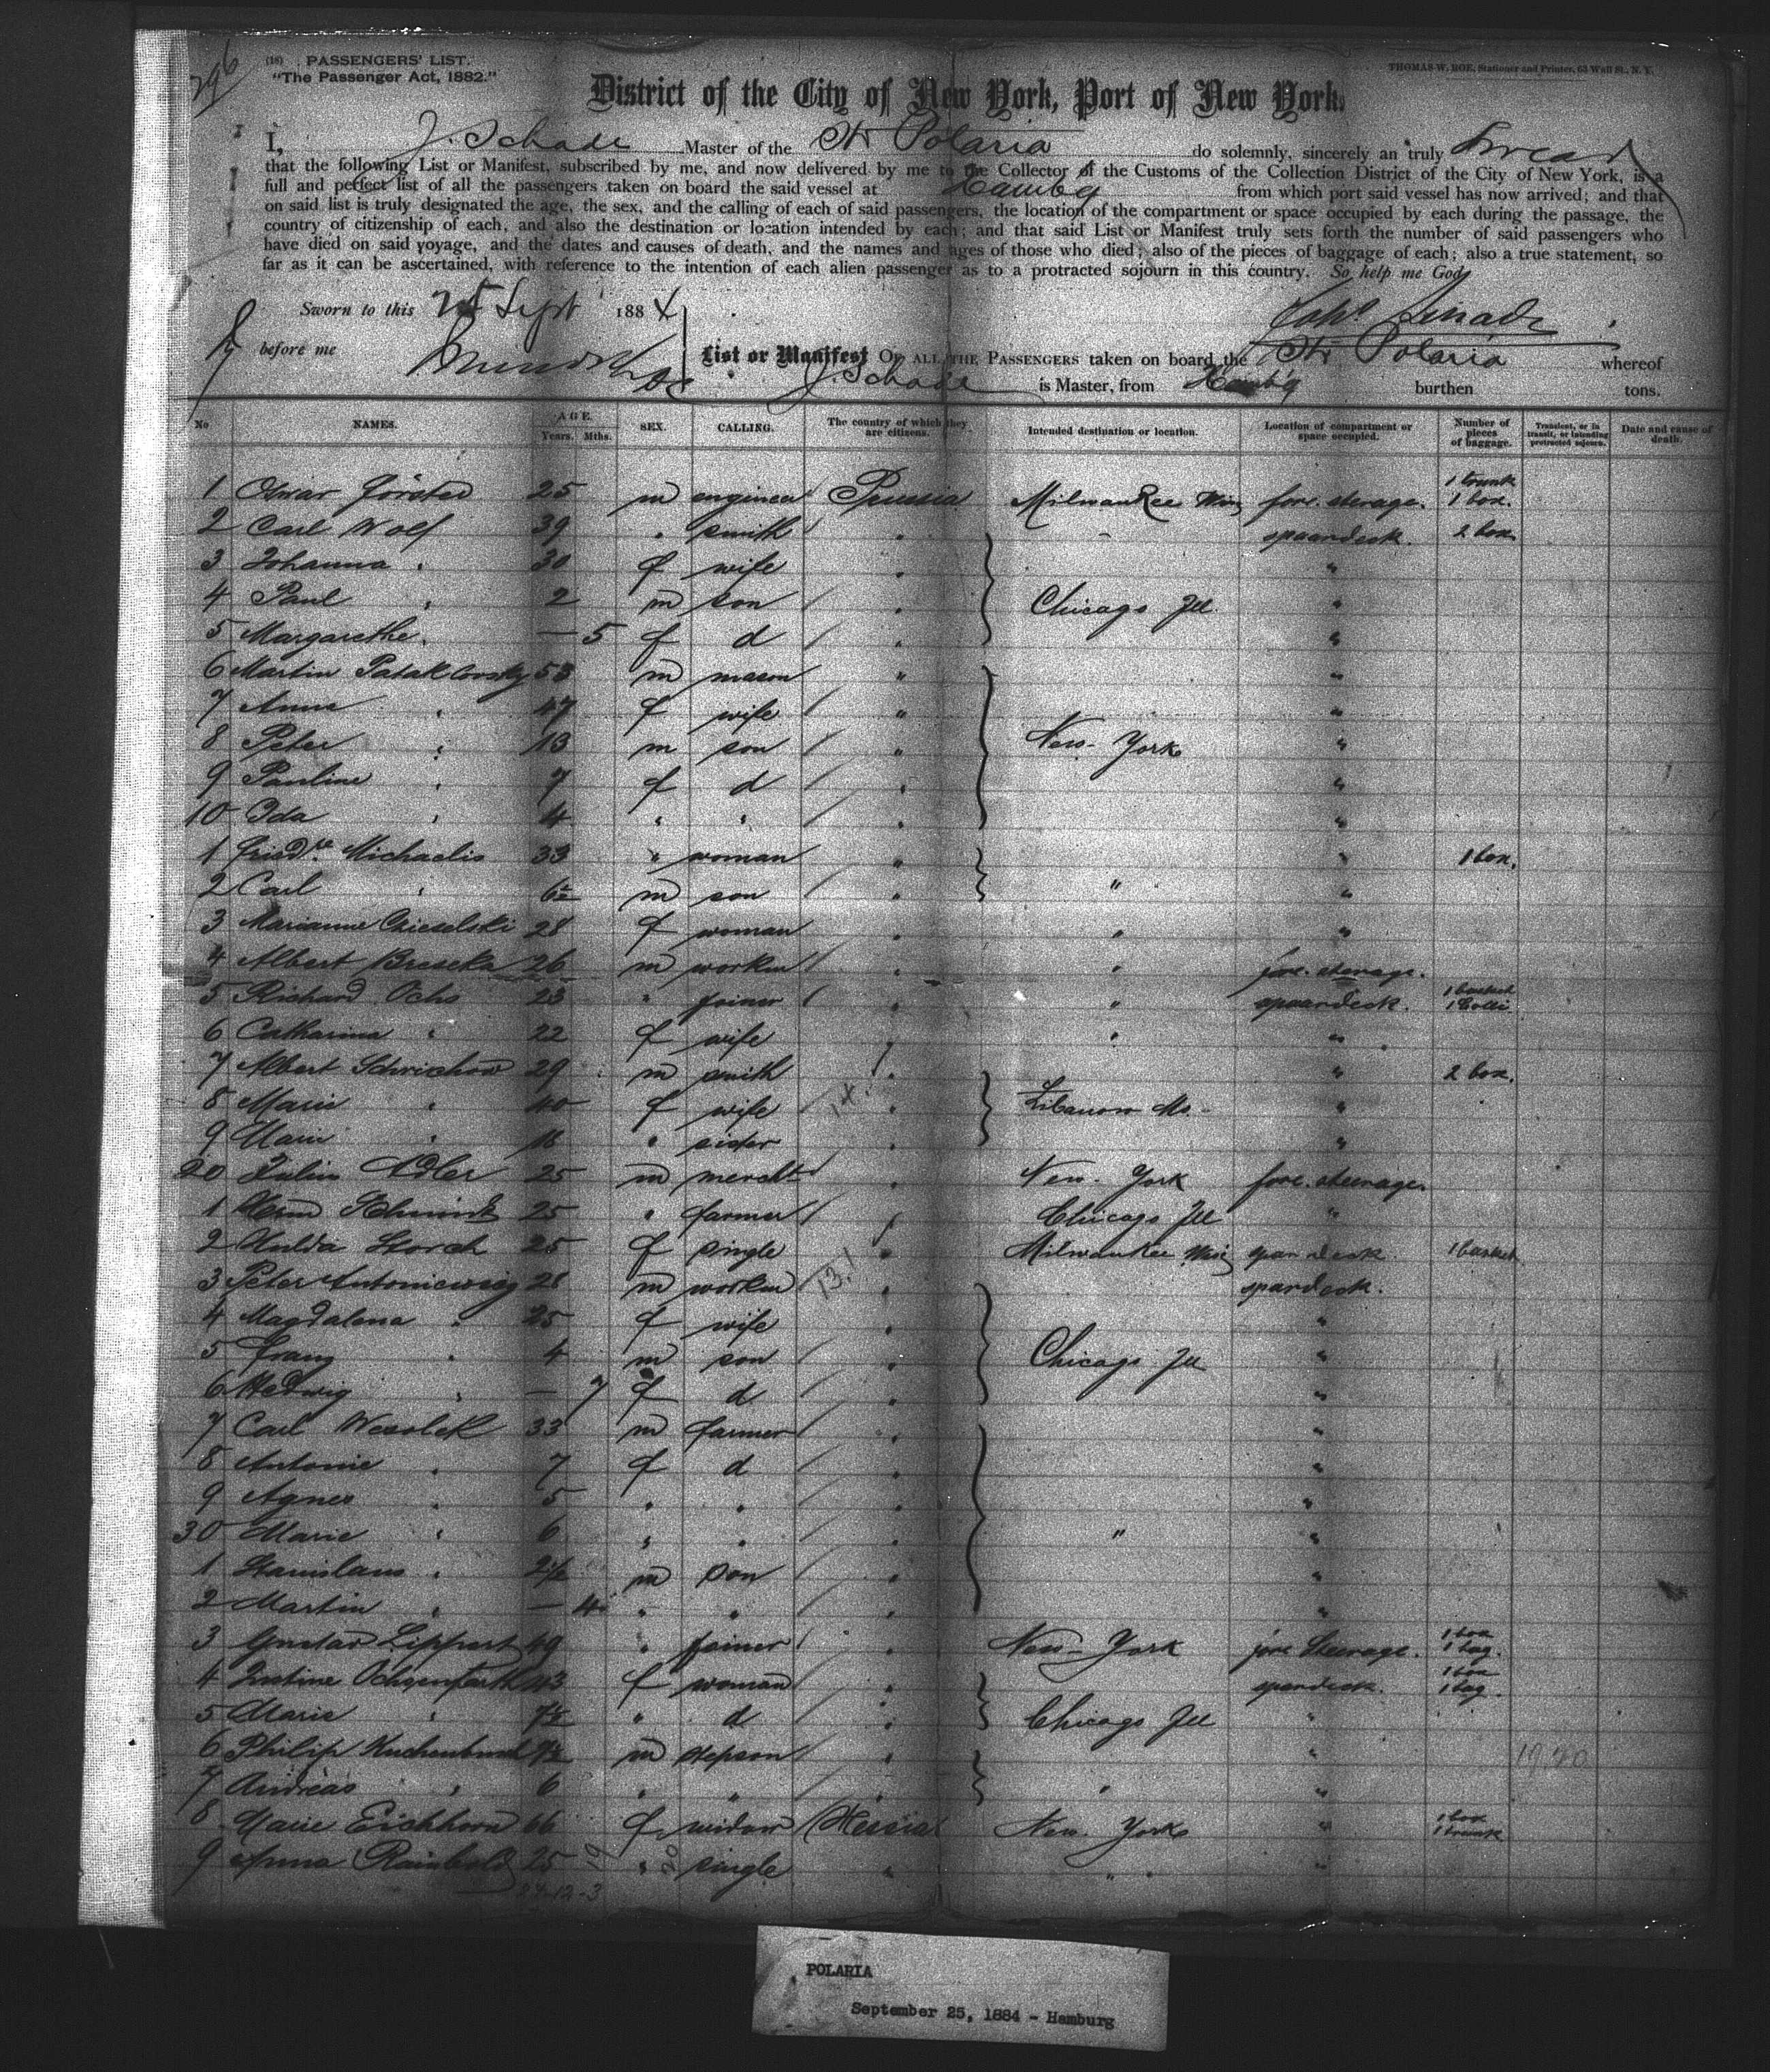 296
(18) PASSENGERS' LIST.
"The Passenger Act, 1882."
THOMAS W. ROE, Stationer and Printer, 63 Wall St., N. Y.
District of the City of New York, Port of New York.
I, J. Schade Master of the Str Polaria do solemnly, sincerely an truly swear
that the following List or Manifest, subscribed by me, and now delivered by me to the Collector of the Customs of the Collection District of the City of New York, is a
full and perfect list of all the passengers taken on board the said vessel at Hambg from which port said vessel has now arrived; and that
on said list is truly designated the age, the sex, and the calling of each of said passengers, the location of the compartment or space occupied by each during the passage, the
country of citizenship of each, and also the destination or location intended by each; and that said List or Manifest truly sets forth the number of said passengers who
have died on said voyage, and the dates and causes of death, and the names and ages of those who died; also of the pieces of baggage of each; also a true statement, so
far as it can be ascertained, with reference to the intention of each alien passenger as to a protracted sojourn in this country. So help me God.
Sworn to this 25 Sept 1884
before me
Joh. Schade
List or Manifest OF ALL THE PASSENGERS taken on board the Str Polaria whereof
J. Schade is Master, from Hambg burthen tons.
No NAMES. AGE. Years. Mths. SEX. CALLING. The country of which they are citizens. Intended destination or location. Location of compartment or space occupied. Number of pieces of baggage. Transient, or in transit, or intending protracted sojourn. Date and cause of death.
1 25 m engineer Prussia Milwaukee Wis fore. steerage. 1 trunk 1 box.
2 Carl Wolf 39 " smith " spaardeck. 2 box.
3 Johanna " 30 f wife " "
4 Paul " 2 m son " Chicago Ill. "
5 Margarethe " — 5 f d " "
6 Martin Patakowsky 53 m mason " "
7 Anna " 47 f wife " "
8 Peter " 13 m son " New-York "
9 Pauline " 7 f d " "
10 Ida " 4 " " " "
1 Friedke Michaelis 33 " woman " " 1 box.
2 Carl " m son " " "
3 Marianne Cieselski 28 f woman " " "
4 Albert Breseka 26 m workm " " fore. steerage.
5 Richard Ochs 23 " joiner " " spaardeck. 1 basket 1 Colli
6 Catharina " 22 f wife " " "
7 Albert Schrichow 29 m smith " " 2 box.
8 Marie " 40 f wife " Libanon Mo. "
9 Marie " 18 " sister " "
20 Julius Adler 25 m mercht " New-York fore. steerage.
1 Herm 25 " farmer Chicago Ill "
2 Hulda Storch 25 f single " Milwaukee Wis spardeck 1 basket
3 Peter Antoniewsig 28 m workm " spardeck.
4 Magdalena " 25 f wife " "
5 Franz " 4 m son " Chicago Ill "
6 Hedwig " — 7 f d " "
7 Carl Wesolek 33 m farmer " "
8 Antonie " 7 f d " "
9 Agnes " 5 " " " "
30 Marie " 6 " " " " "
1 Stanislaus " m son " "
2 Martin " — 4 " " " "
3 Gustav Lippert 49 " joiner New-York fore Steerage. 1 box 1 bag.
4 Justine 43 f woman " spardeck. 1 box 1 bag.
5 Marie " " d " Chicago Ill "
6 Philip m stepson " "
7 Andreas " 6 " " " " "
8 Marie Eichhorn 66 f widow Hessia New-York " 1 box 1 trunk
9 Anna Rainbold 25 " single " " "
POLARIA
September 25, 1884 - Hamburg